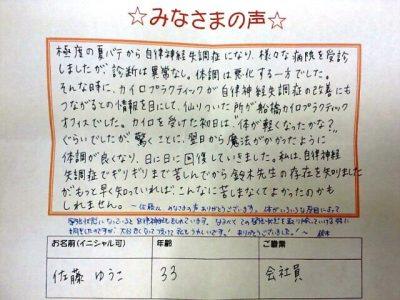 ☆みなさまの声☆
極度の夏バテから自律神経失調症になり、様々な病院を受診
しましたが、診断は異常なし。体調は悪化する一方でした。
そんな時に、カイロプラクティックが自律神経失調症の改善にも
つながるとの情報を目にして、辿りついた所が船橋カイロプラクティック
オフィスでした。カイロを受けた初日は、"体が軽くなったかな?"
ぐらいでしたが、驚くことに、翌日から魔法がかかったように
体調が良くなり、日に日に回復していきました。私は、自律神経
失調症でギリギリまで苦しんでから鈴木先生の存在を知りました
が、もっと早く知っていれば、こんなに苦しまなくてよかったのかも
しれません。
〜佐藤さん みなさまの声ありがとうございます。体がいろいろな原因によって
ありがとうございました!
鈴木
お名前(イニシャル可) 年齢 ご職業
佐藤 ゆうこ 33 会社員